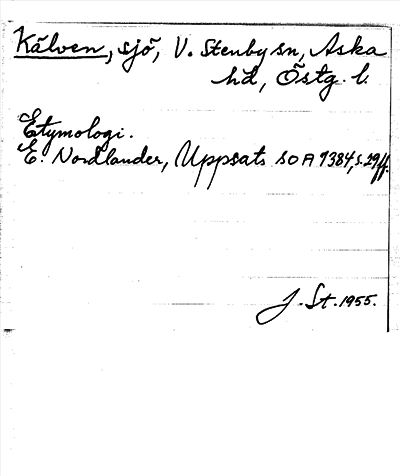 Kälven, sjö, V. Stenby sn, Aska
hd, Östg. l.
Etymologi.
E. Nordlander, Uppsats SOA 9384, s. 29ff.
J. St. 1955.